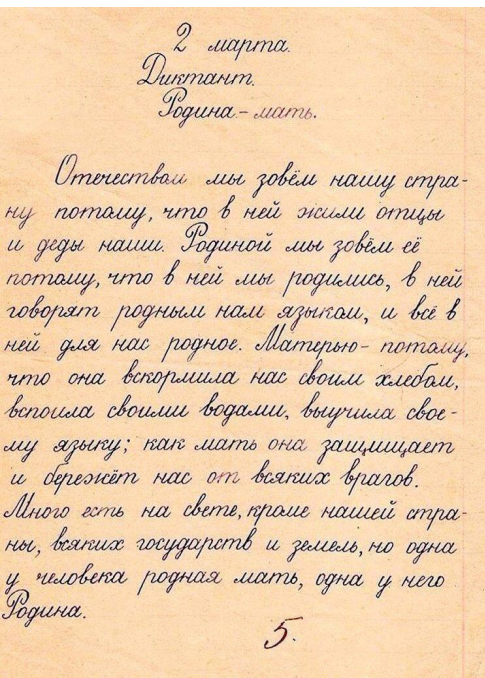 2 марта.
Диктант.
Родина - мать.
Отечеством мы зовём нашу стра-
ну потому, что в ней жили отцы
и деды наши. Родиной мы зовём её
потому, что в ней мы родились, в ней
говорят родным нам языком, и всё в
ней для нас родное. Матерью - потому,
что она вскормила нас своим хлебом,
вспоила своими водами, выучила свое-
му языку; как мать она защищает
и бережёт нас от всяких врагов.
Много есть на свете, кроме нашей стра-
ны, всяких государств и земель, но одна
у человека родная мать, одна у него
Родина.
5.